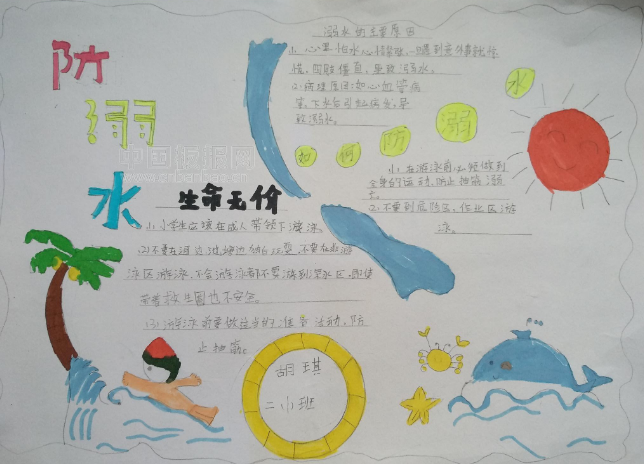 防
溺
水
中国板报网
溺水的主要原因
1、心里怕水心情紧张,一遇到意外事就惊
慌,四肢僵直,导致溺水。
(2)病理原因如心血管病
等,下水后引起病发,导
致溺水。
如何防溺水
(1)在游泳前必须做到
全身的运动,防止抽筋溺
(2)不要到危险
游
泳。
生命无价
(1)小学生应该在成人带领下游泳。
(2)不要在河边池塘边
不要在
泳区游泳,不会游泳者不要游到深水区,即使
带着救生圈也不安全。
(3)游泳前要做适当的准备活动,防
止抽筋。
胡琪
二小班